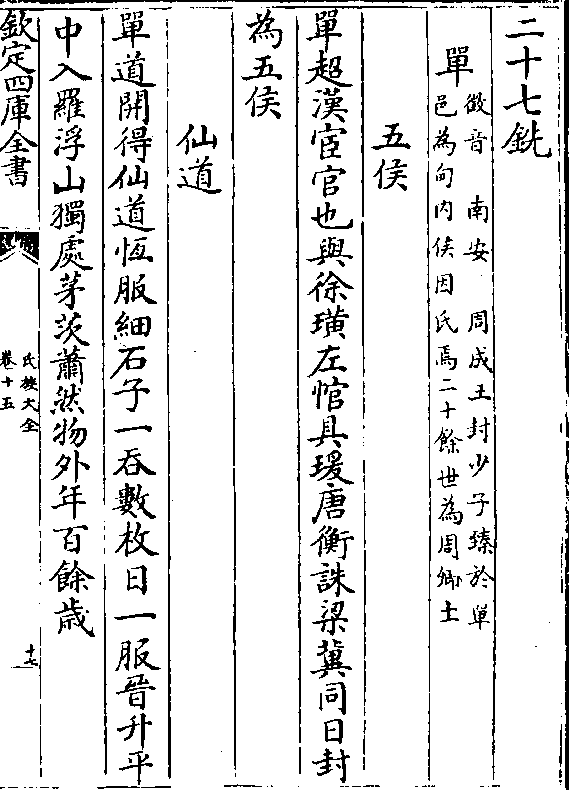 二十七銑
單
徵音　南安　周成王封少子臻於單
邑為甸内侯因氏焉二十餘世為周卿士
五侯
單超漢宦官也與徐璜左悺具瑗唐衡誅梁冀同日封
為五侯
仙道
單道開得仙道恆服細石子一吞數枚日一服晉升平
中入羅浮山獨處茅茨蕭然物外年百餘歳
欽定四庫全書
氏族大全
卷十五
十七